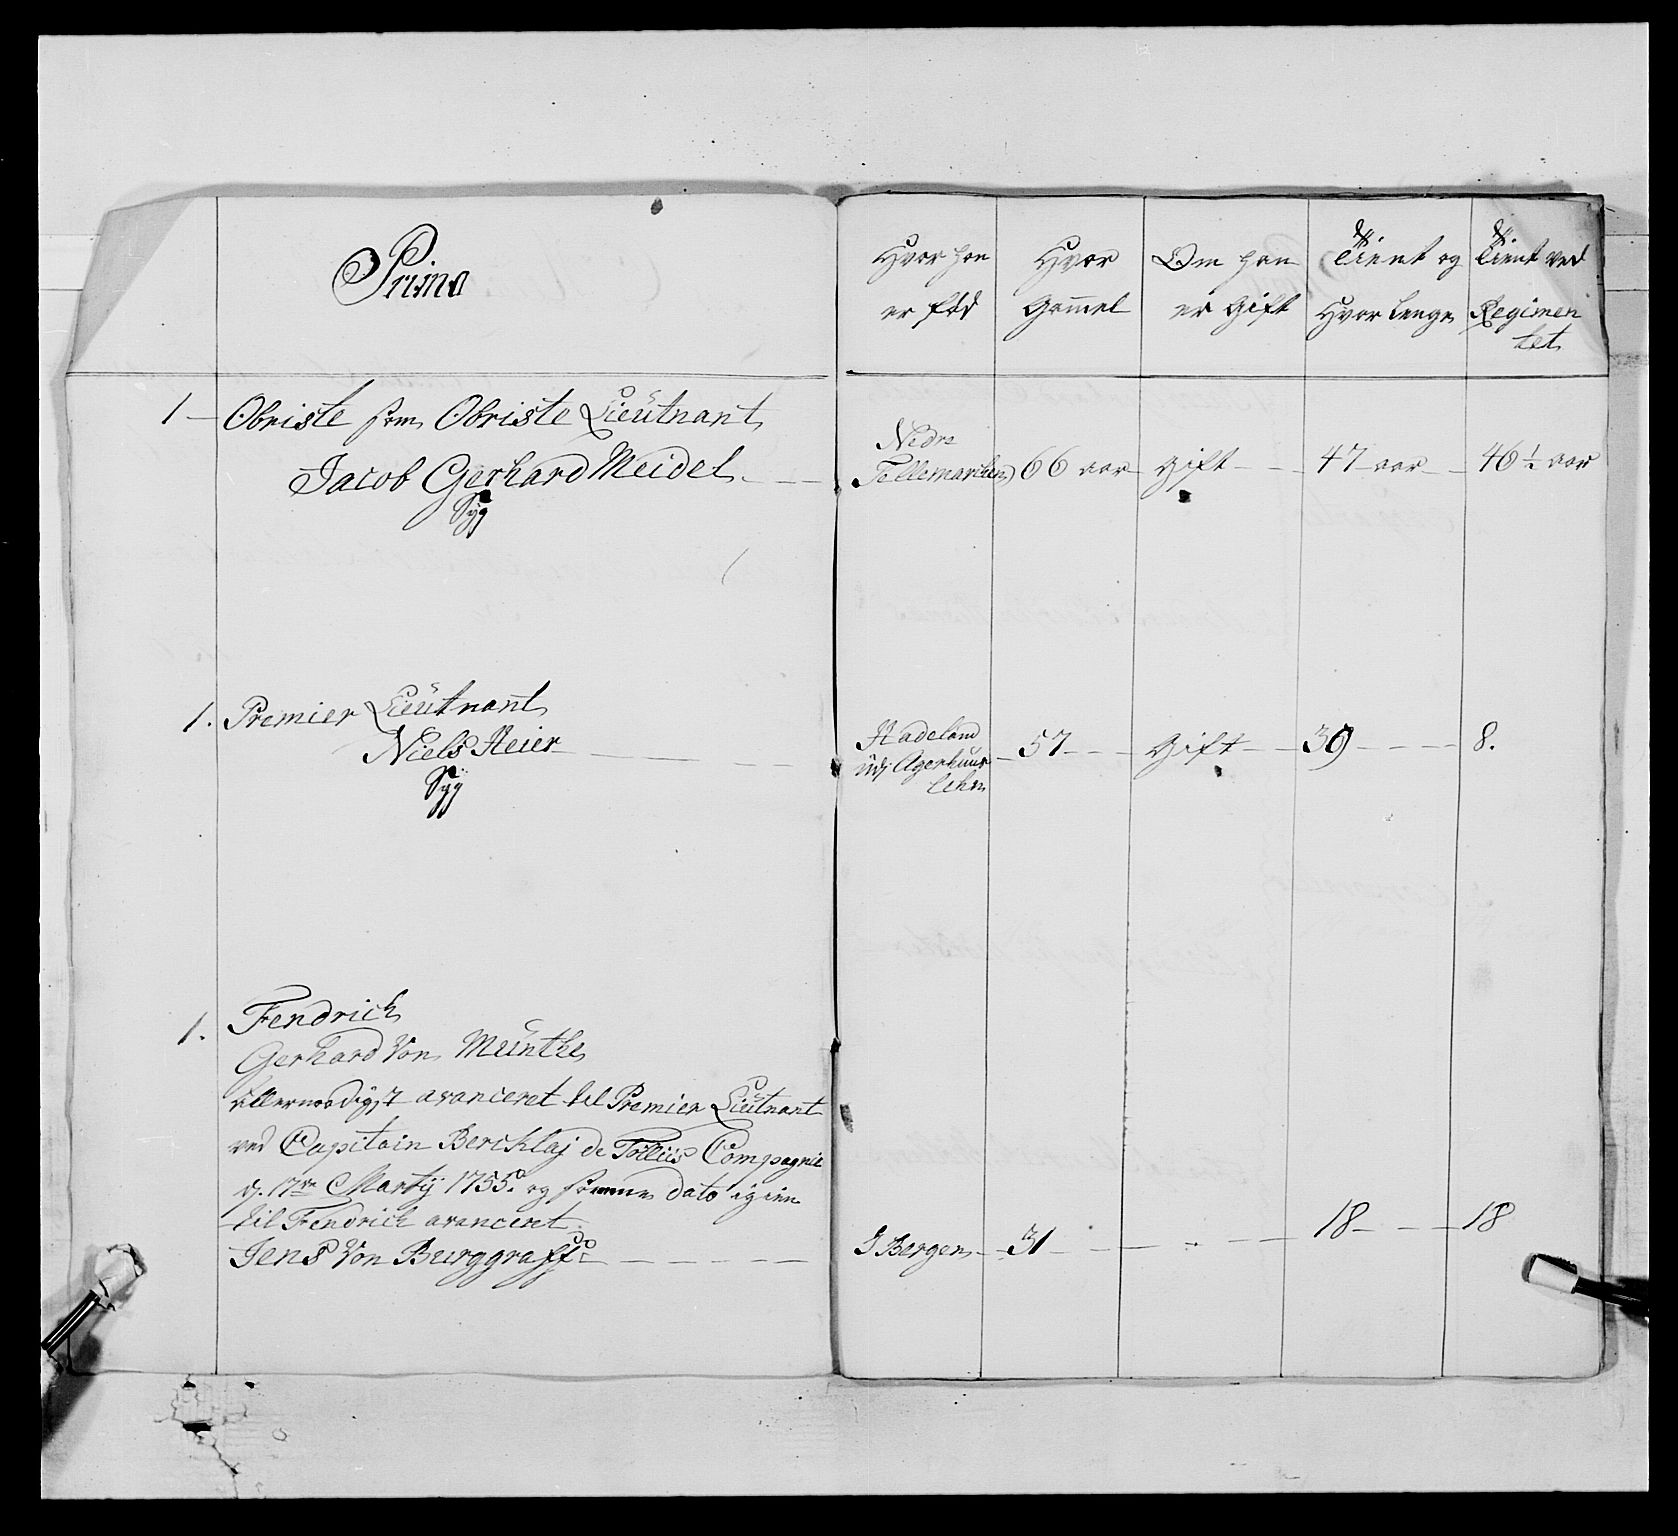 Prima
Hvor han er fød
Hvor Gam̄el
Om han er Gift
Tient og Hvor lenge
Tient ved Regimentet
1 Obriste som Obriste Lieutnant
Jacob Gerhard Meidel
Syg
Nedre Tellemarken 66 aar gift 47 aar 46½ aar
1. Premier Lieutnant
Niels Heier
Syg
Hadeland udj Agerhuus Lehn 57 Gift 39 8.
1. Fendrich
Gerhard Von Munthe
allernaadigst avanceret til Premier Lieutnant
ved Capitain Bercklaj de Tollÿs Compagnie
d. 17de Martÿ 1755. og samme dato igien
til Fendrich avanceret
Jens Von Burggraff
I Bergen 31 18 18